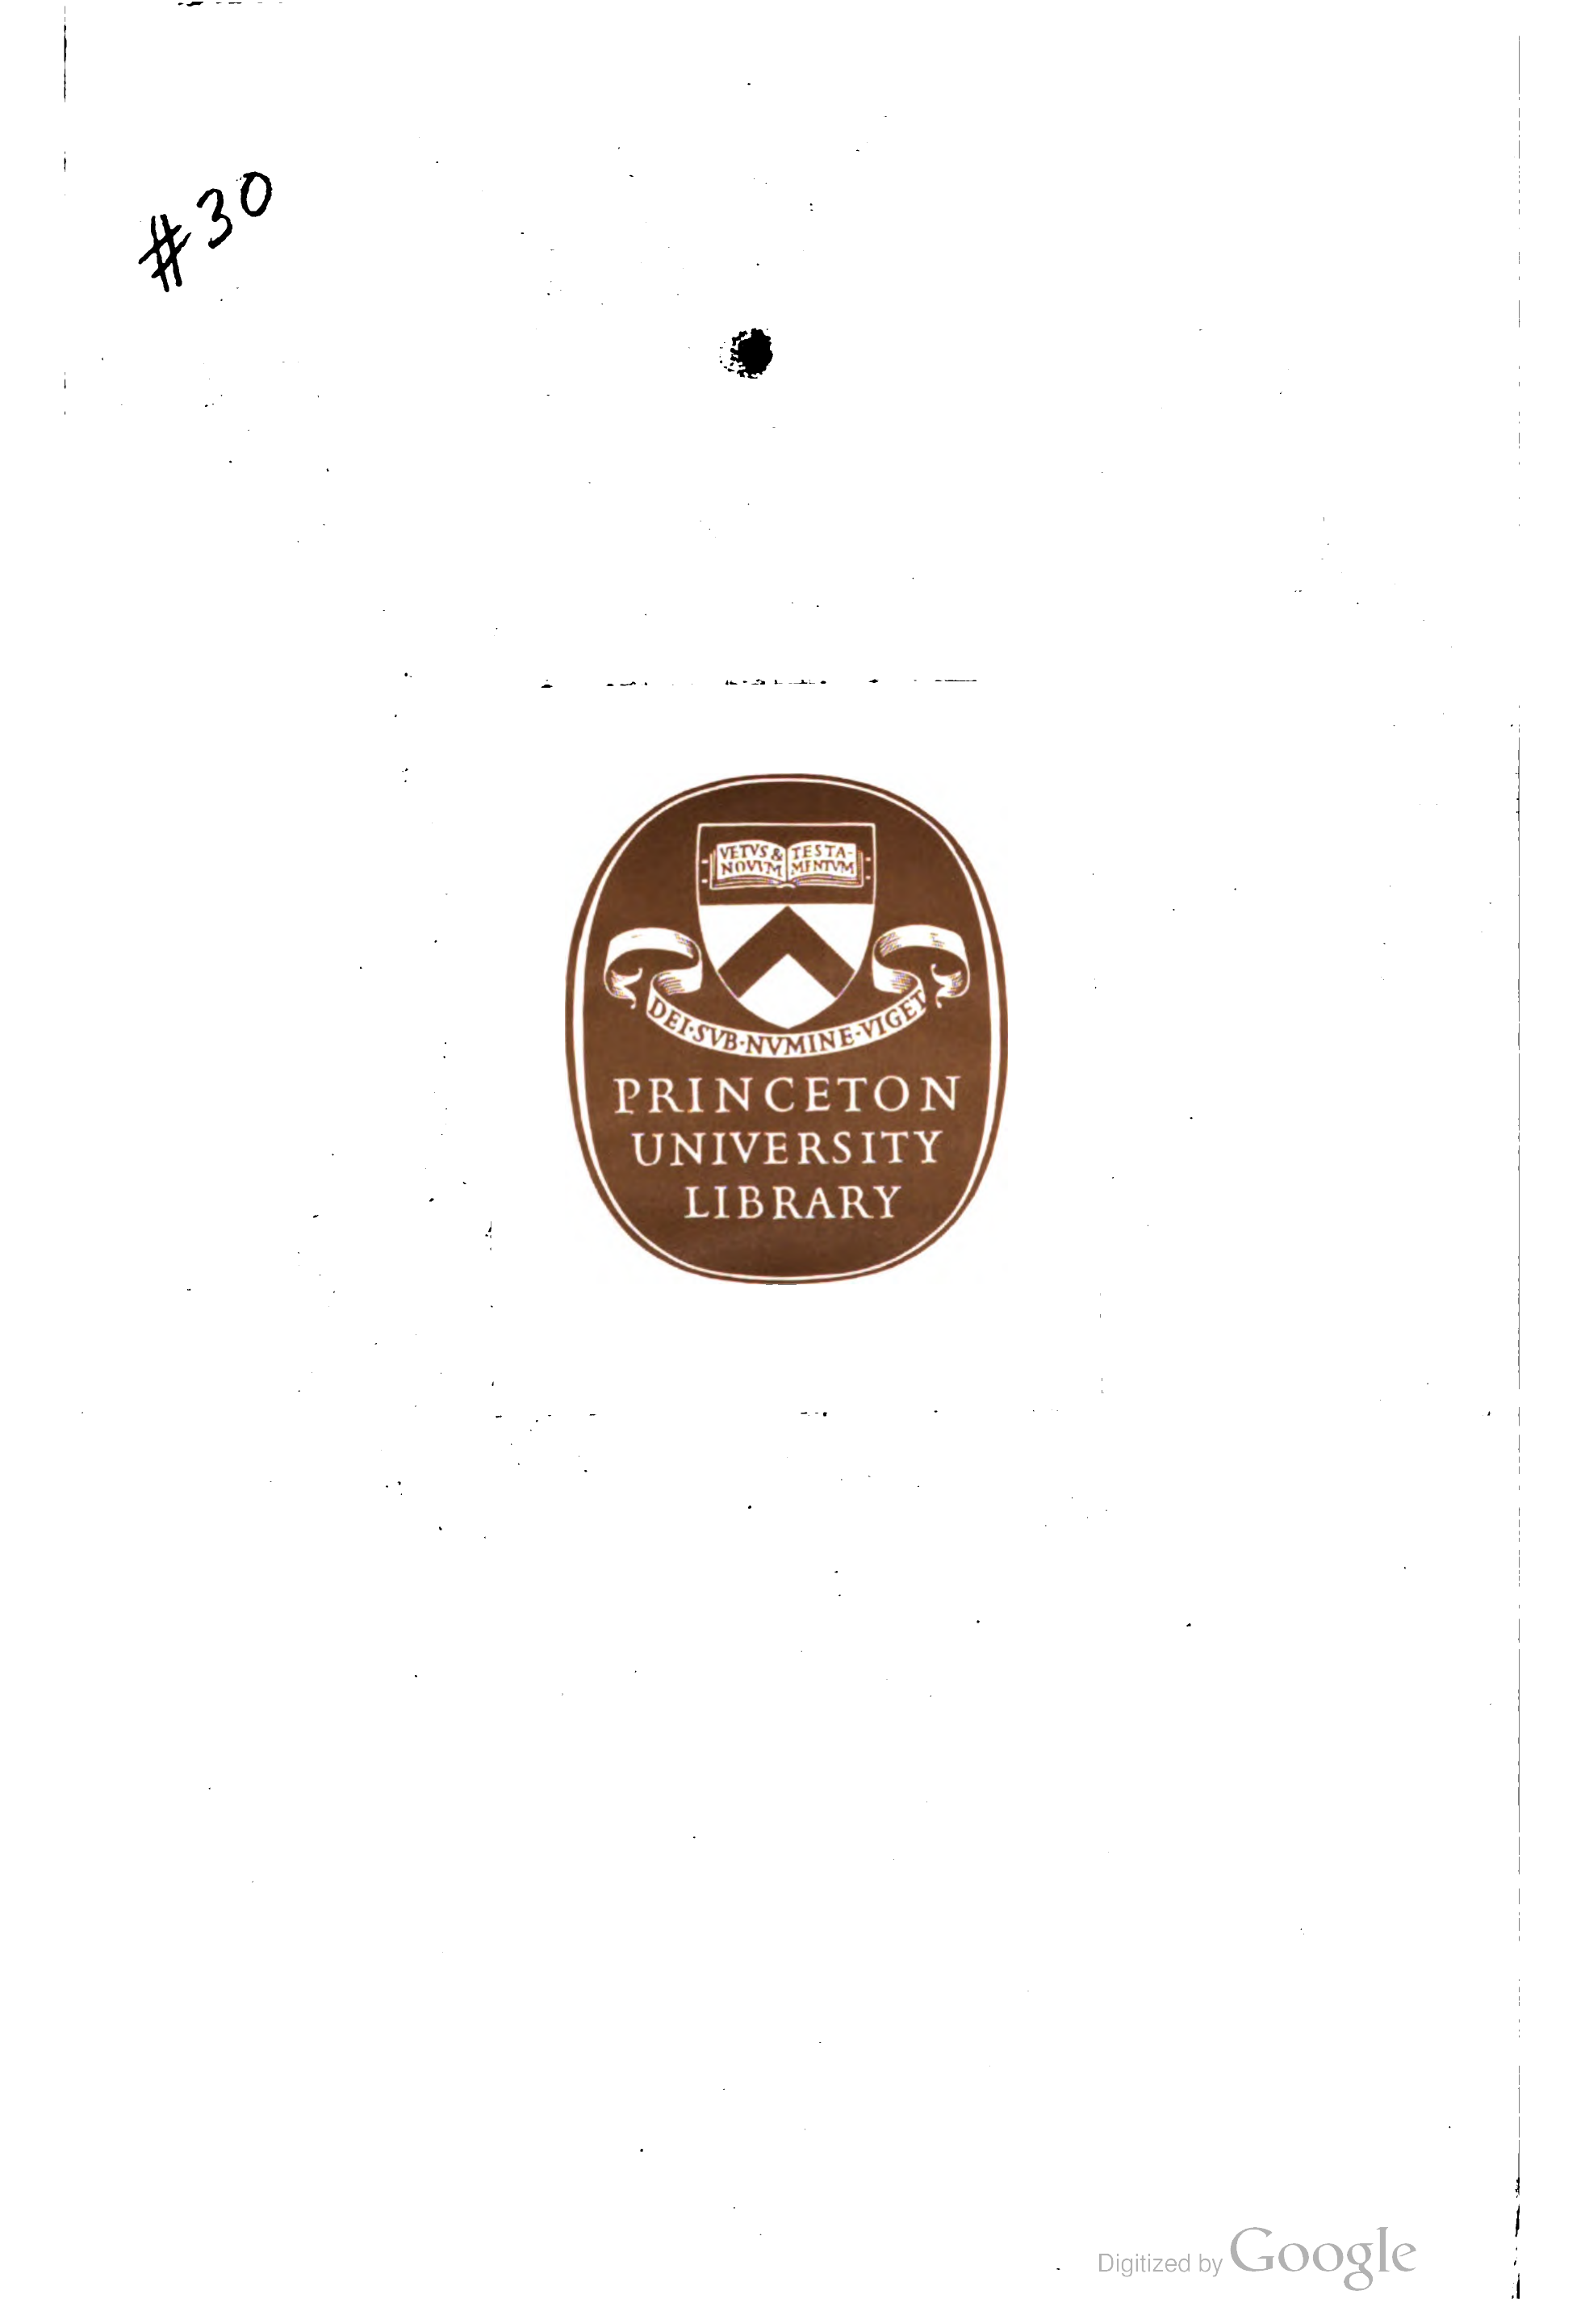 #30
VETVS & TESTA-
NOVVM MENTVM
DEI·SVB·NVMINE·VIGET
PRINCETON
UNIVERSITY
LIBRARY
Digitized by Google